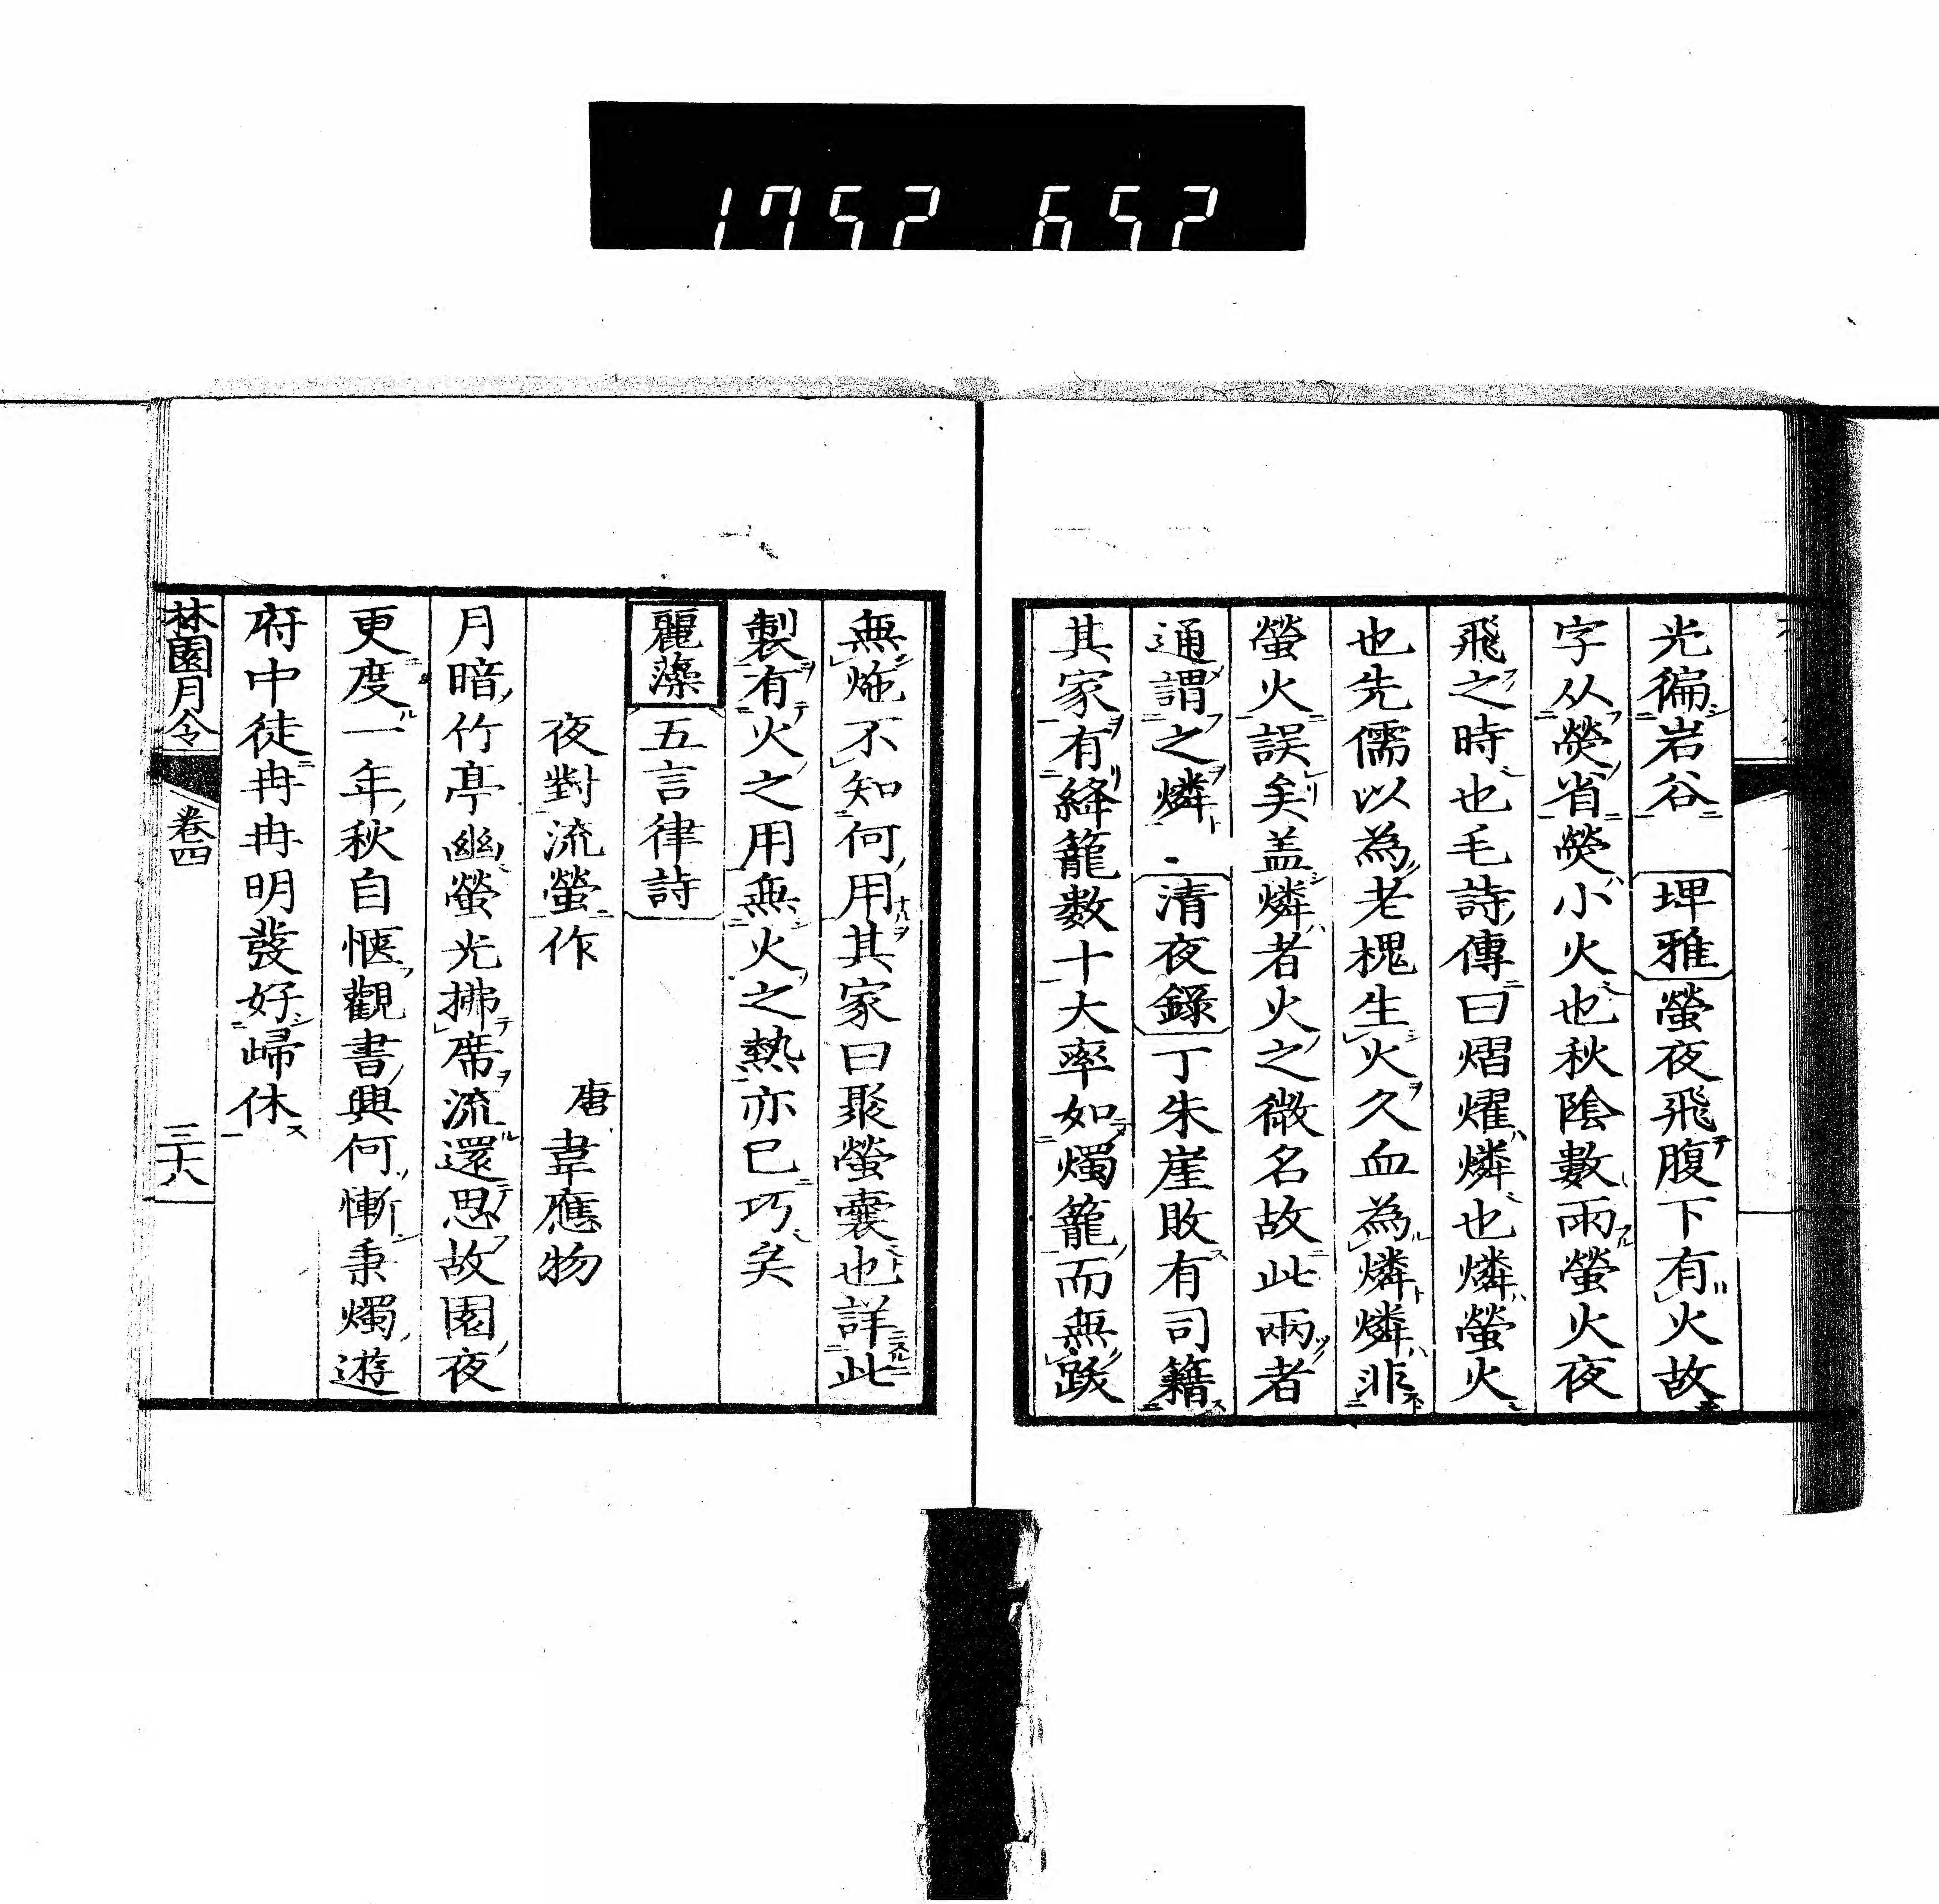 1752 652
光徧岩谷 埤雅 螢夜飛腹下有火故
字从熒省熒小火也秋陰數雨螢火夜
飛之時也毛詩傳曰熠燿燐也燐螢火
也先儒以為老槐生火久血為燐燐非
螢火誤矣盖燐者火之微名故此兩者
通謂之燐・清夜錄 丁朱崖敗有司籍
其家有絳籠數十大率如燭籠而無跋
無炧不知何用其家曰聚螢囊也詳此
製有火之用無火之熱亦已巧矣
麗藻 五言律詩
夜對流螢作 唐 韋應物
月暗竹亭幽螢光拂席流還思故園夜
更度一年秋自愜觀書興何慚秉燭遊
府中徒冉冉明發好歸休
林園月令 卷四 三十八